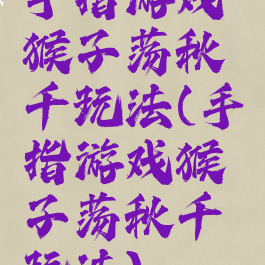 手指游戏
猴子荡秋
千玩法(手
指游戏猴
子荡秋千
玩法)